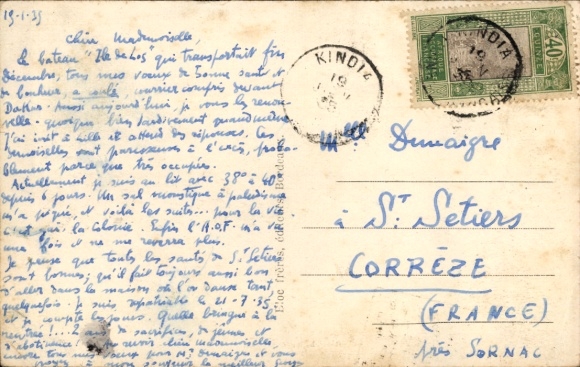 19-1-35
Chère Mademoiselle,
Le bateau "Ile de Los" qui transportait fin
Décembre, tous mes vœux de bonne santé et
de bonheur, a coulé, courrier compris devant
Dakar. Aussi aujourd'hui, je vous les renou-
velle quoique bien tardivement quand même
J'ai écrit à Lille et attend des réponses. Les
demoiselles sont paresseuses à l'excès, proba-
blement parce que très occupées.
Actuellement je suis au lit avec 38° à 40°
depuis 6 jours. Un sal moustique à paludisme
m'a piqué, et voilà les suites... pour la vie
c'est qui la Colonie. Enfin l'A.O.F. m'a vu
une fois et ne me reverra plus.
Je pense que tous les sants de St Setiers
sont bonnes; qu'il fait toujours aussi bon
d'aller dans la maison où l'on danse tant
quelquefois. je suis rapatriable le 21-7-35
et je compte les jours. Quelle bringue à la
rentrée !... 2 ans de sacrifices, de jeûnes et
d'abstinence! Au revoir chère mademoiselle,
encore tous mes vœux pour Mr Dumaigre et vous
à mon souvenir le meilleur
KINDIA
19
35
KINDIA
19
35
40c
GUINÉE
Mlle Dumaigre
à St Setiers
CORRÈZE
(FRANCE)
près SORNAC
frères, Bordeaux